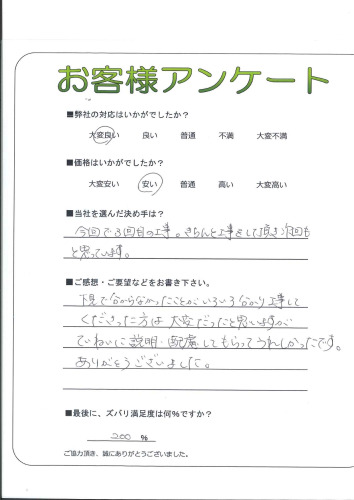 お客様アンケート
■弊社の対応はいかがでしたか？
大変良い 良い 普通 不満 大変不満
■価格はいかがでしたか？
大変安い 安い 普通 高い 大変高い
■当社を選んだ決め手は？
今回で3回目の工事。きちんと工事をして頂き次回も
と思っています。
■ご感想・ご要望などをお書き下さい。
下見で分からなかったことがいろいろ分かり工事して
くださった方は大変だったと思いますが
ていねいに説明・配慮してもらってうれしかったです。
ありがとうございました。
■最後に、ズバリ満足度は何%ですか？
200 %
ご協力頂き、誠にありがとうございました。